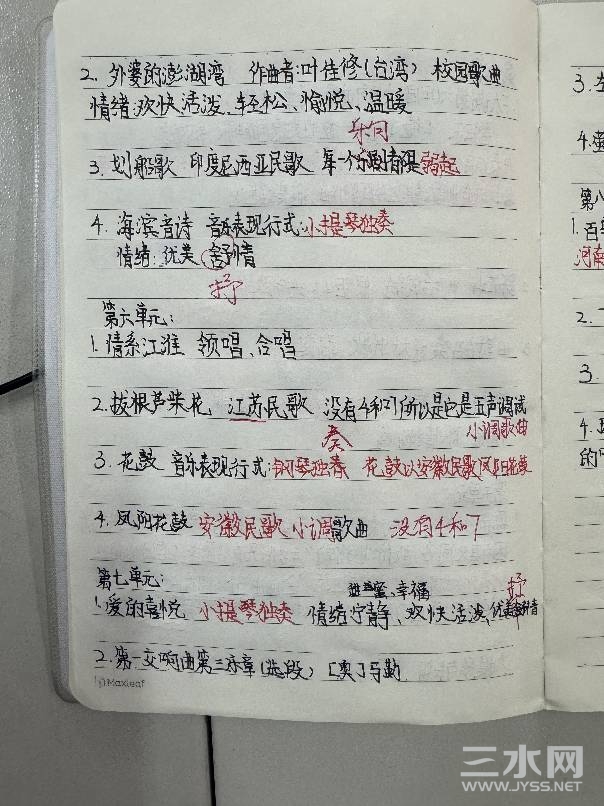 2. 外婆的澎湖湾 作曲者:叶佳修(台湾) 校园歌曲
情绪:欢快活泼、轻松、愉悦、温暖
乐句
3. 划船歌 印度尼西亚民歌 每一个乐句都是弱起
4. 海滨音诗 音乐表现行式:小提琴独奏
情绪:优美 舒情
抒
第六单元:
1. 情系江淮 领唱、合唱
2. 拔根芦柴花 江苏民歌 没有4和7所以是它是五声调式
奏 小调歌曲
3. 花鼓 音乐表现行式:钢琴独奏 花鼓以安徽民歌凤阳花鼓
4. 凤阳花鼓 安徽民歌 小调歌曲 没有4和7
第七单元:
甜蜜、幸福 抒
1. 爱的喜悦 小提琴独奏 情绪:宁静、欢快活泼、优美
2. 第一交响曲第三乐章(选段) [奥]马勒
Maxleaf
3.
4.
第八
1. 百
河南
2.
3.
4.
的
三水网
WWW.JYSS.NET